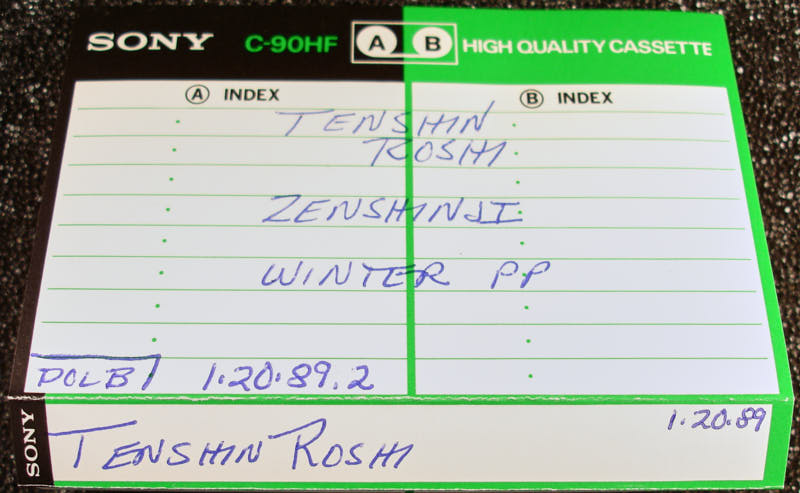 SONY C-90HF A B HIGH QUALITY CASSETTE
A INDEX B INDEX
TENSHIN
ROSHI
ZENSHINJI
WINTER PP
DOLBY 1.20.89.2
SONY
TENSHIN ROSHI 1.20.89